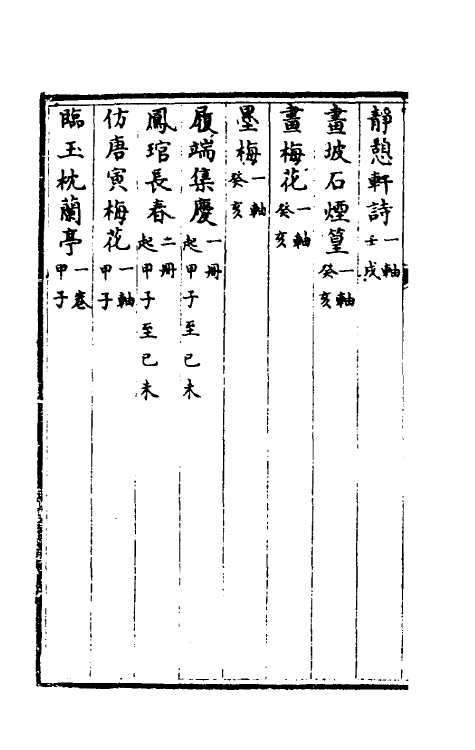 靜憩軒詩一軸壬戌
畫坡石煙篁一軸癸亥
畫梅花一軸癸亥
墨梅一軸癸亥
履端集慶一冊起甲子至已未
鳳琯長春二冊起甲子至已未
仿唐寅梅花一軸甲子
臨玉枕蘭亭一卷甲子